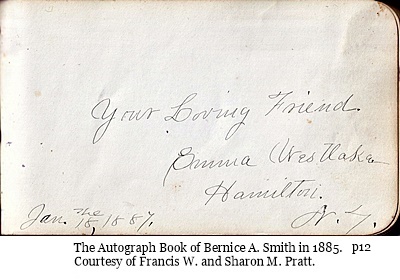 Your Loving Friend.
Emma Westlake
Hamilton.
Jan. the 18, 1887. N. Y.
The Autograph Book of Bernice A. Smith in 1885. p12
Courtesy of Francis W. and Sharon M. Pratt.